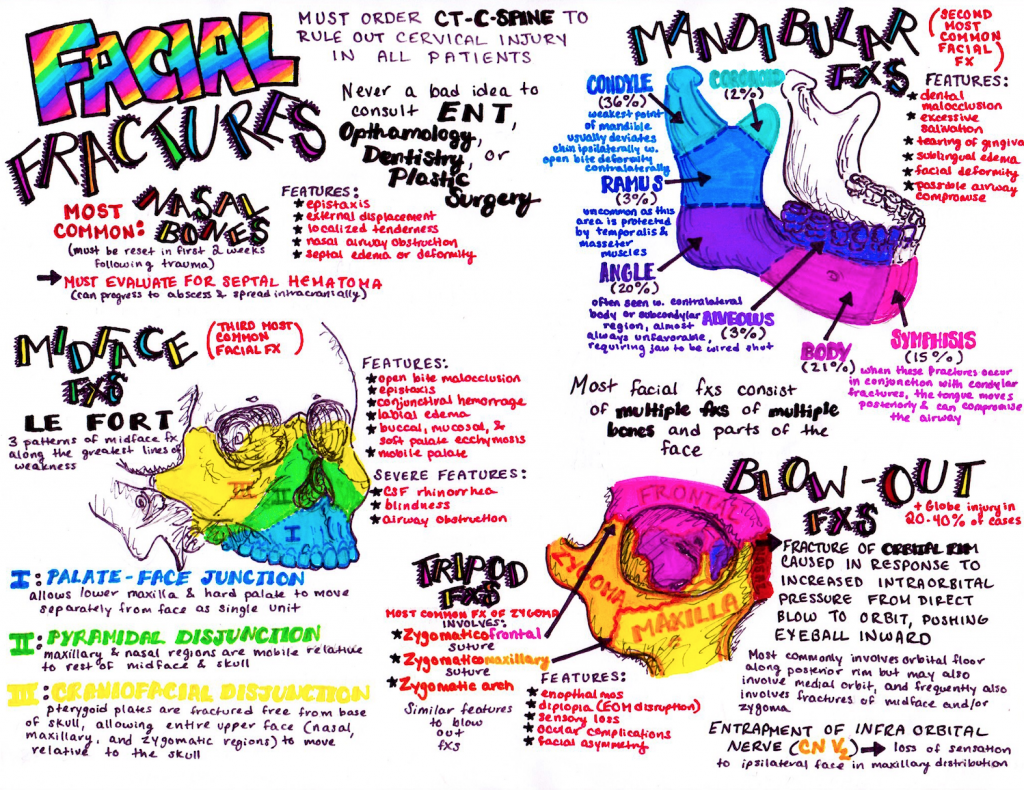 FACIAL
FRACTURES
MUST ORDER CT-C-SPINE TO
RULE OUT CERVICAL INJURY
IN ALL PATIENTS
Never a bad idea to
consult ENT,
Opthamology,
Dentistry, or
Plastic
Surgery
MOST
COMMON:
NASAL
BONES
(must be reset in first 2 weeks
following trauma)
FEATURES:
★ epistaxis
★ external displacement
★ localized tenderness
★ nasal airway obstruction
★ septal edema or deformity
→ MUST EVALUATE FOR SEPTAL HEMATOMA
(can progress to abscess & spread intracranially)
MANDIBULAR
FXS
(SECOND
MOST
COMMON
FACIAL
FX)
FEATURES:
★ dental
malocclusion
★ excessive
salivation
★ tearing of gingiva
★ sublingual edema
★ facial deformity
★ possible airway
compromise
CONDYLE
(36%)
weakest point
of mandible
usually deviates
chin ipsilaterally w.
open bite deformity
contralaterally
CORONOID
(2%)
RAMUS
(3%)
uncommon as this
area is protected
by temporalis &
masseter
muscles
ANGLE
(20%)
often seen w. contralateral
body or subcondylar
region, almost
always unfavorable,
requiring jaw to be wired shut
ALVEOLUS
(3%)
BODY
(21%)
SYMPHISIS
(15%)
when these fractures occur
in conjunction with condylar
fractures, the tongue moves
posteriorly & can compromise
the airway
Most facial fxs consist
of multiple fxs of multiple
bones and parts of the
face
MIDFACE
FXS
(THIRD MOST
COMMON
FACIAL FX)
LE FORT
3 patterns of midface fx
along the greatest lines of
weakness
FEATURES:
★ open bite malocclusion
★ epistaxis
★ conjunctival hemorrage
★ labial edema
★ buccal, mucosal, &
soft palate ecchymosis
★ mobile palate
SEVERE FEATURES:
★ CSF rhinorrhea
★ blindness
★ airway obstruction
III
II
I
I: PALATE-FACE JUNCTION
allows lower maxilla & hard palate to move
separately from face as single unit
II: PYRAMIDAL DISJUNCTION
maxillary & nasal regions are mobile relative
to rest of midface & skull
III: CRANIOFACIAL DISJUNCTION
pterygoid plates are fractured free from base
of skull, allowing entire upper face (nasal,
maxillary, and zygomatic regions) to move
relative to the skull
TRIPOD
FXS
MOST COMMON FX OF ZYGOMA
INVOLVES:
★ Zygomaticofrontal
suture
★ Zygomaticomaxillary
suture
★ Zygomatic arch
Similar features
to blow
out
fxs
FRONTAL
ZYGOMA
MAXILLA
FEATURES:
★ enopthalmos
★ diplopia (EOM disruption)
★ sensory loss
★ ocular complications
★ facial asymmetry
BLOW-OUT
FXS
+ Globe injury in
20-40% of cases
FRACTURE OF ORBITAL RIM
CAUSED IN RESPONSE TO
INCREASED INTRAORBITAL
PRESSURE FROM DIRECT
BLOW TO ORBIT, PUSHING
EYEBALL INWARD
Most commonly involves orbital floor
along posterior rim but may also
involve medial orbit, and frequently also
involves fractures of midface and/or
zygoma
ENTRAPMENT OF INFRA ORBITAL
NERVE (CN V2) → loss of sensation
to ipsilateral face in maxillary distribution